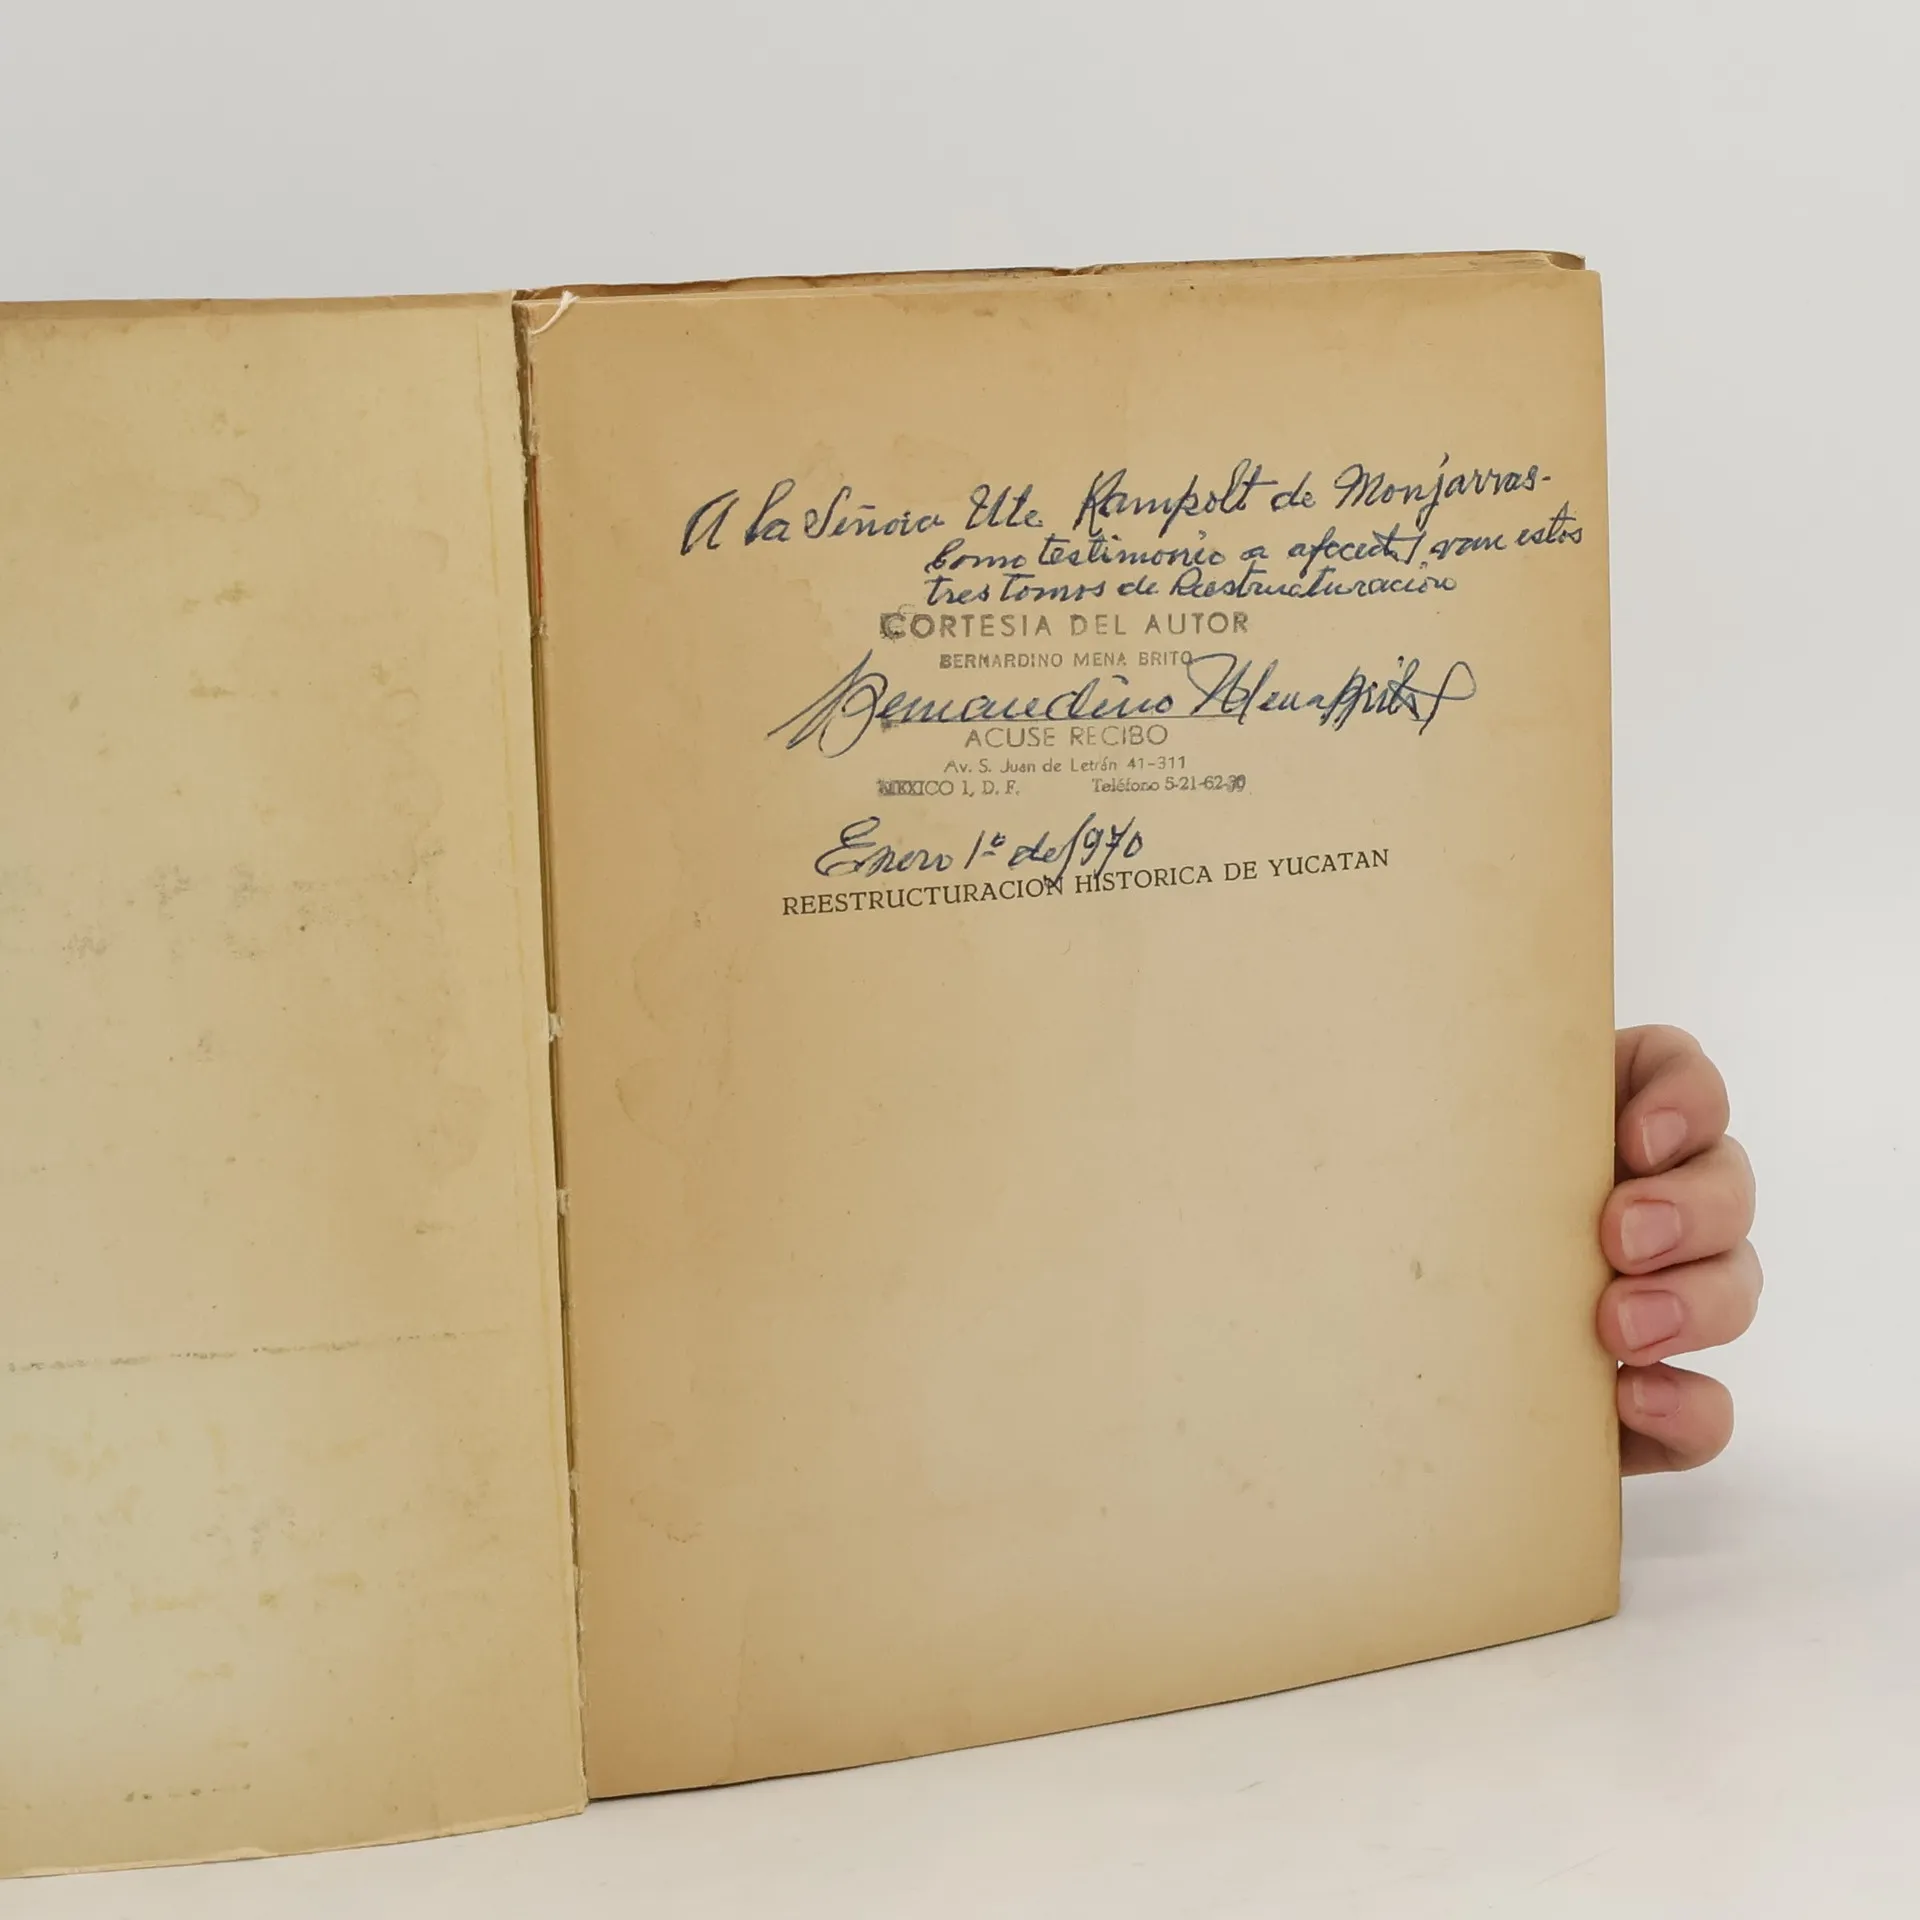 A la Señora Ute Rampolt de Monjarras-
Como testimonio a afecto van estos
tres tomos de Reestructuración
CORTESIA DEL AUTOR
BERNARDINO MENA BRITO
Bernardino Mena Brito
ACUSE RECIBO
Av. S. Juan de Letrán 41-311
MEXICO 1, D. F. Teléfono 5-21-62-30
Enero 1º de 1970
REESTRUCTURACION HISTORICA DE YUCATAN